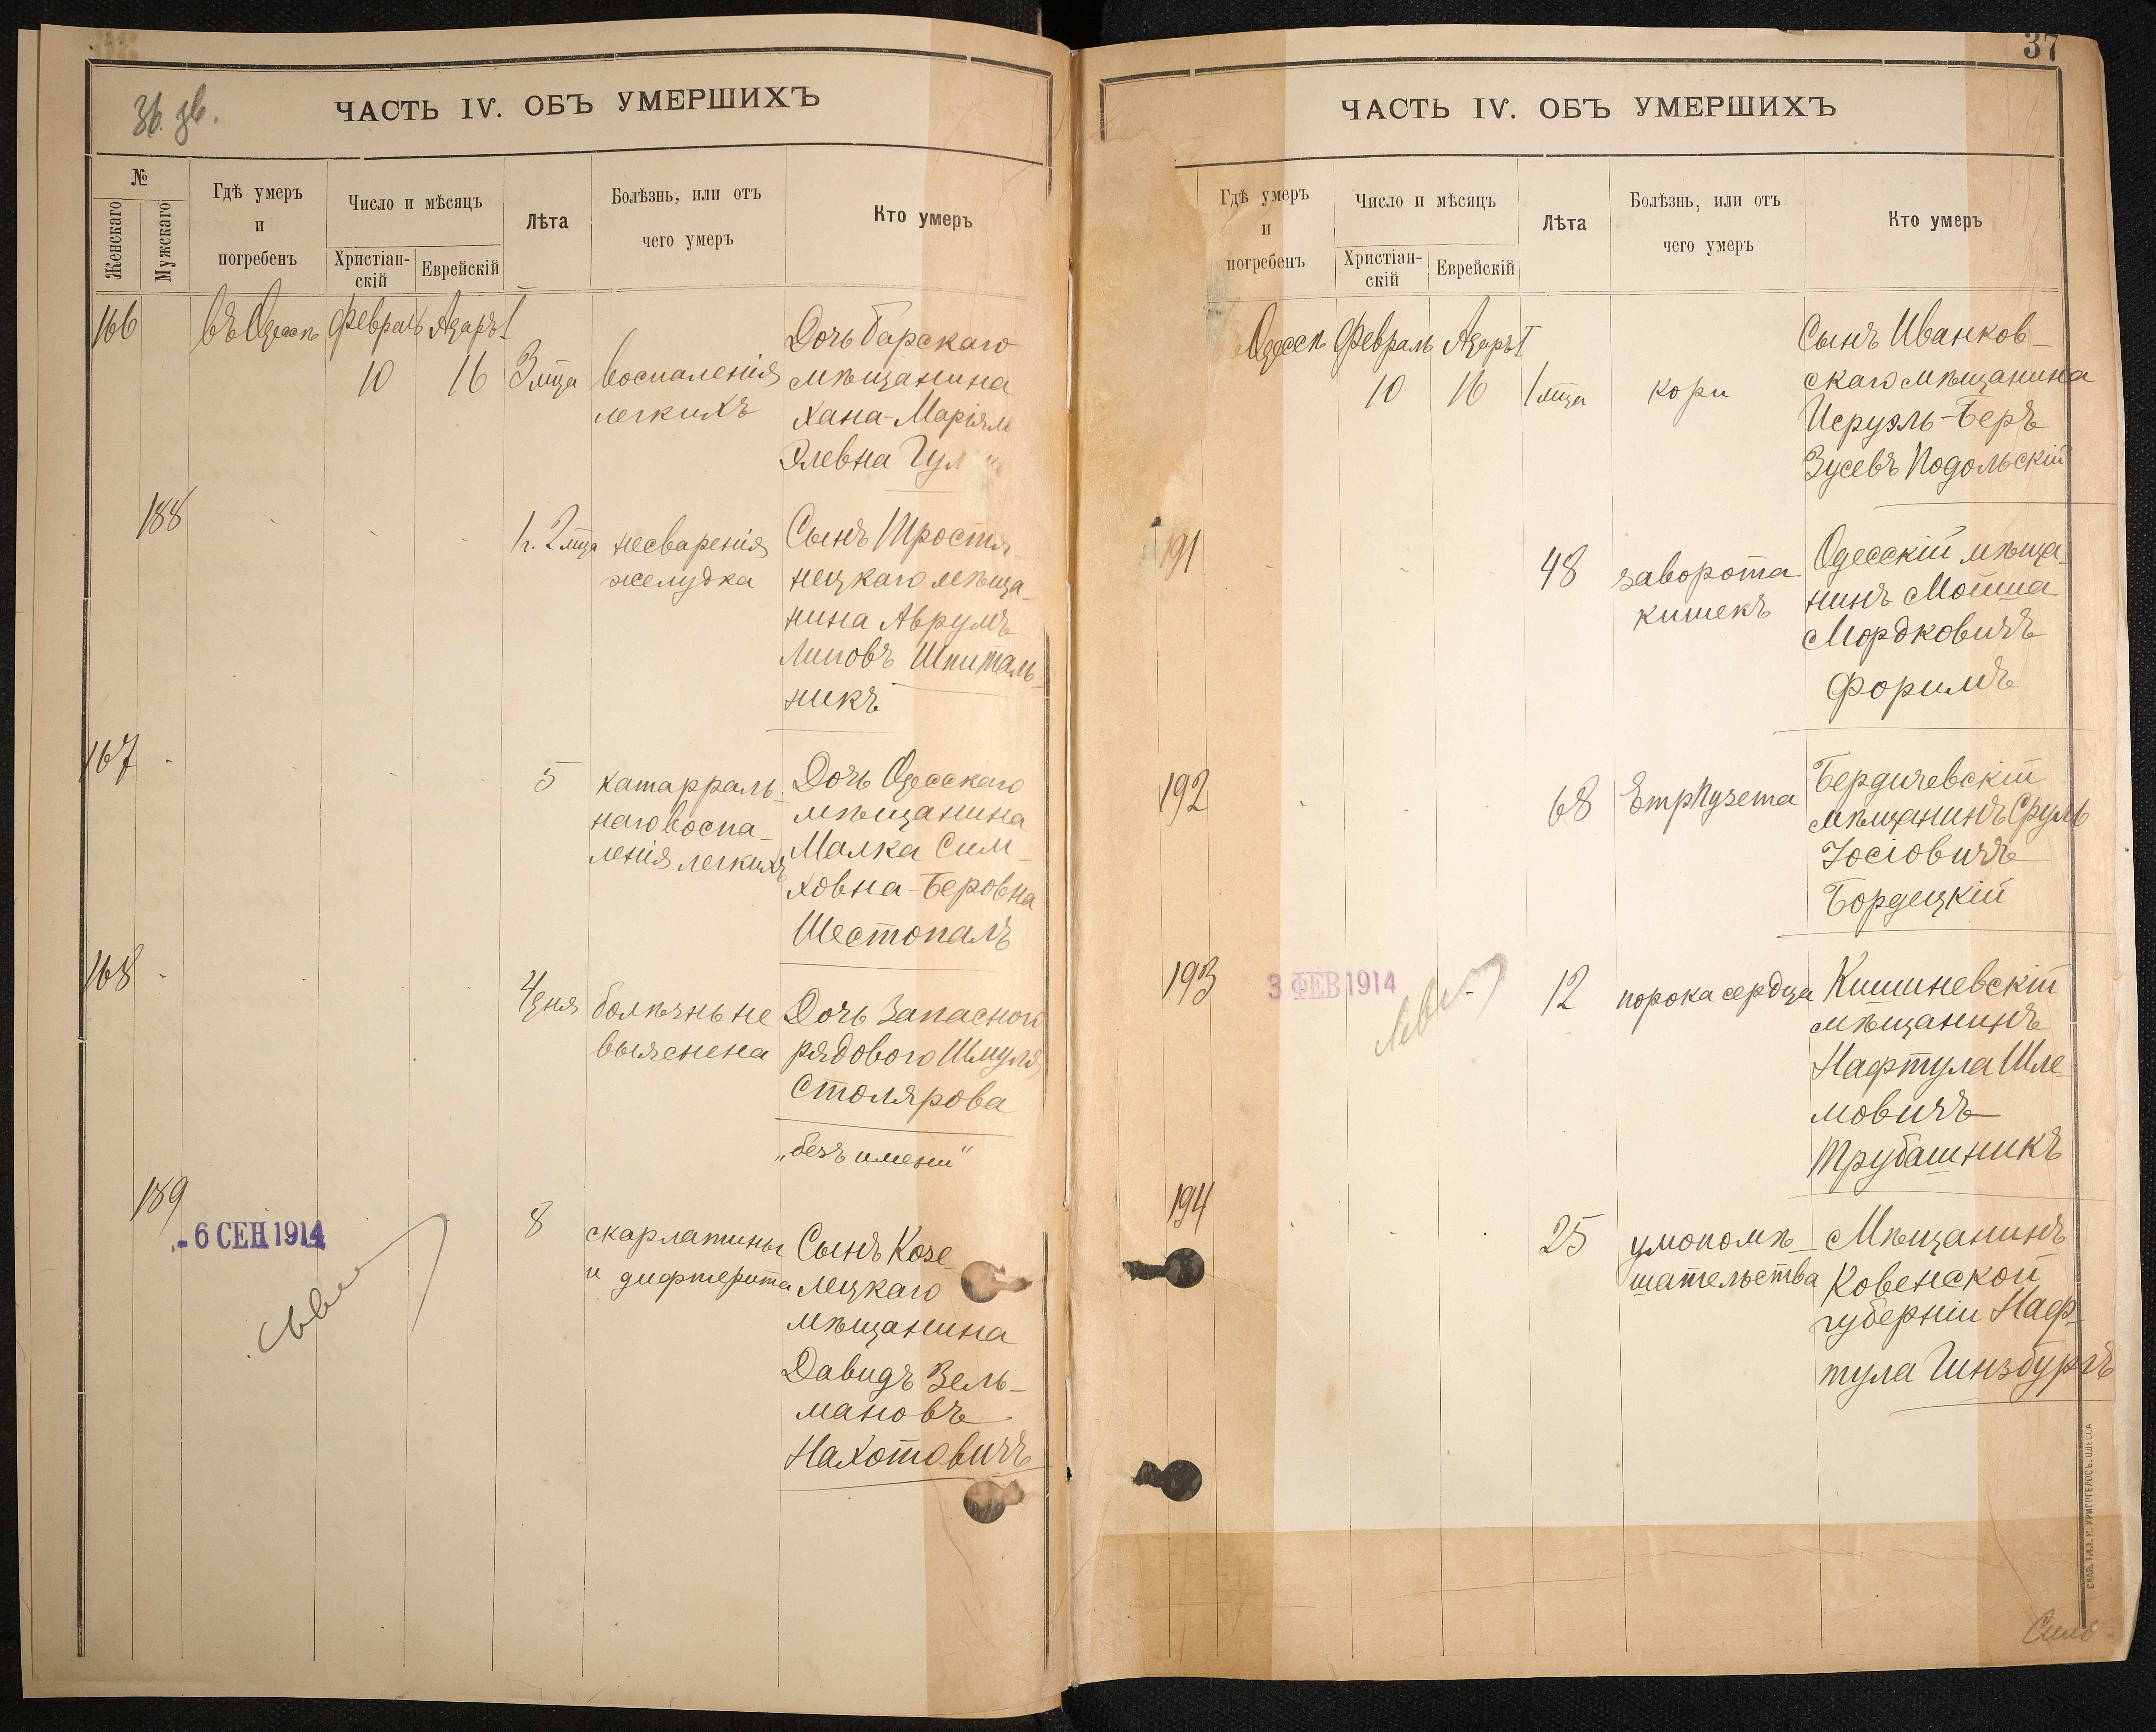 36 об.
ЧАСТЬ IV. ОБЪ УМЕРШИХЪ
№
Женскаго
Мужскаго
Гдѣ умеръ
и
погребенъ
Число и мѣсяцъ
Христіан-
скій
Еврейскій
Лѣта
Болѣзнь, или отъ
чего умеръ
Кто умеръ
166
въ Одессѣ
Февраль
10
Адаръ I
16
3 м-ца
воспаленія
легкихъ
Дочь Барскаго
мѣщанина
Хана-Маріям
Элевна Гул
188
1 г. 2 м-ца
несваренія
желудка
Сынъ Тростя-
нецкаго мѣща-
нина Аврумъ
Липовъ Шпиталь-
никъ
167
5
катарраль-
наго воспа-
ленія легкихъ
Дочь Одесскаго
мѣщанина
Малка Сим-
ховна-Беровна
Шестопалъ
168
4 дня
болѣзнь не
выяснена
Дочь Запасного
рядового Шмуля
Столярова
„безъ имени"
189
- 6 СЕН 1914
8
скарлатины
и дифтерита
Сынъ Козе-
лецкаго
мѣщанина
Давидъ Зель-
мановъ
Нахотовичъ
37
ЧАСТЬ IV. ОБЪ УМЕРШИХЪ
Гдѣ умеръ
и
погребенъ
Число и мѣсяцъ
Христіан-
скій
Еврейскій
Лѣта
Болѣзнь, или отъ
чего умеръ
Кто умеръ
Одессѣ
Февраль
10
Адаръ I
16
1 м-ца
кори
Сынъ Иванков-
скаго мѣщанина
Исруэль-Беръ
Зусевъ Подольскій
191
48
заворота
кишекъ
Одесскій мѣща-
нинъ Мойша
Мордковичъ
Форимъ
192
68
Бердичевскій
мѣщанинъ Сруль
Іосіовичъ
Бордецкій
193
3 ФЕВ 1914
12
порока сердца
Кишиневскій
мѣщанинъ
Нафтула Шле-
мовичъ
Трубашникъ
194
25
умопомѣ-
шательства
Мѣщанинъ
Ковенской
губерніи Наф-
тула Гинзбургъ